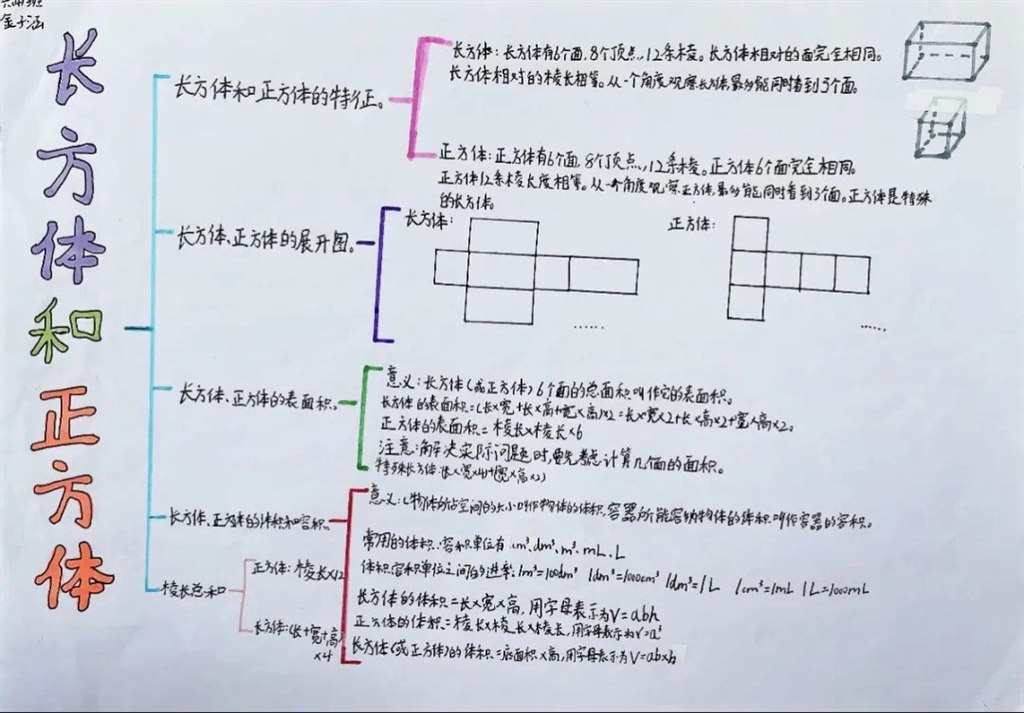 金子涵
长方体和正方体
长方体和正方体的特征。
长方体：长方体有6个面，8个顶点，12条棱。长方体相对的面完全相同。
长方体相对的棱长相等。从一个角度观察长方体，最多能同时看到3个面。
正方体：正方体有6个面，8个顶点，12条棱。正方体6个面完全相同。
正方体12条棱长度相等。从一个角度观察正方体，最多能同时看到3个面。正方体是特殊
的长方体。
长方体、正方体的展开图。
长方体：
正方体：
……
……
长方体、正方体的表面积。
意义：长方体（或正方体）6个面的总面积叫作它的表面积。
长方体的表面积=(长×宽+长×高+宽×高)×2=长×宽×2+长×高×2+宽×高×2。
正方体的表面积=棱长×棱长×6
注意：解决实际问题时，要先考虑计算几个面的面积。
特殊长方体：(长×宽×4)+(宽×高×2)
长方体、正方体的体积和容积。
意义：(物体所占空间的大小叫作物体的体积，容器所能容纳物体的体积叫作容器的容积。
常用的体积、容积单位有 cm³、dm³、m³、mL、L
体积、容积单位之间的进率：1m³=100dm³ 1dm³=1000cm³ 1dm³=1L 1cm³=1mL 1L=1000mL
长方体的体积=长×宽×高，用字母表示为V=abh
正方体的体积=棱长×棱长×棱长，用字母表示为V=a³
长方体（或正方体）的体积=底面积×高，用字母表示为V=ab×h
棱长总和
正方体：棱长×12
长方体：(长+宽+高)
×4